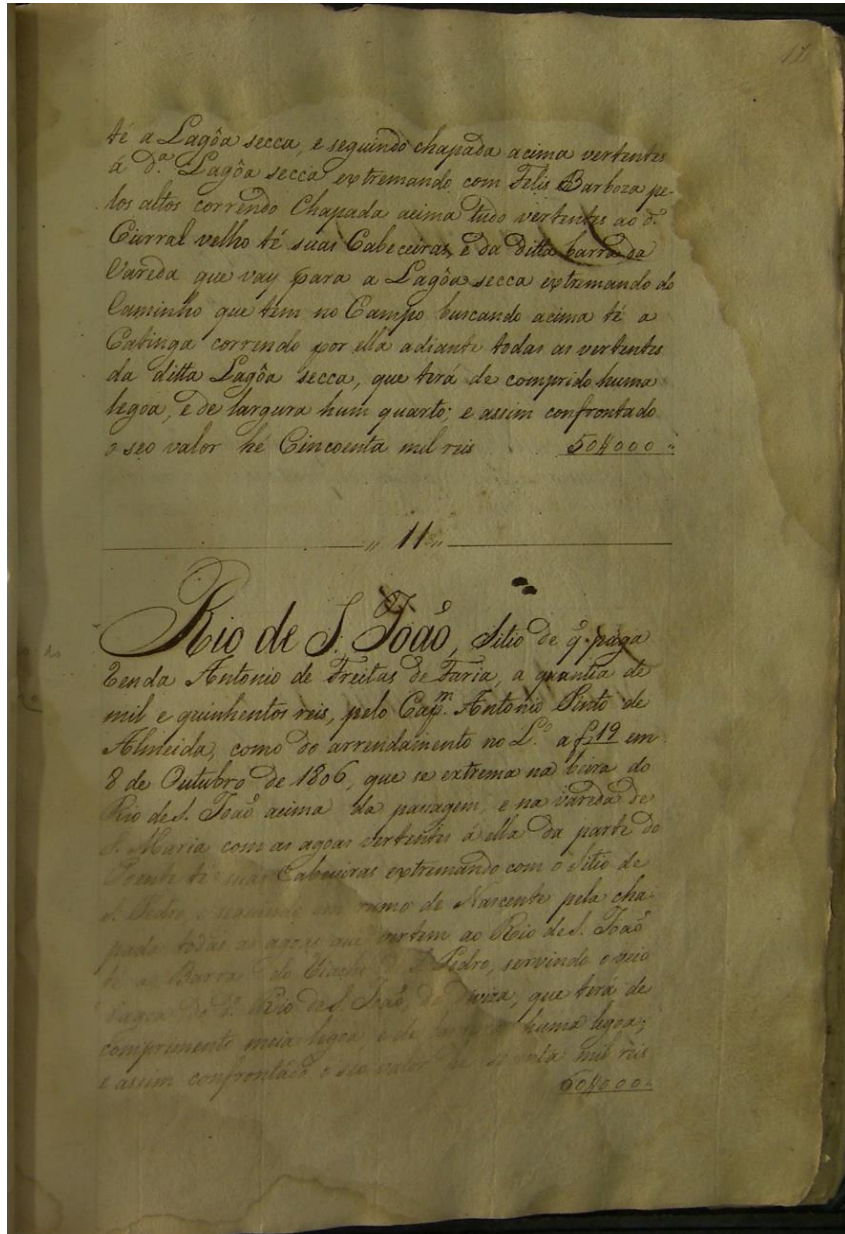 17
té a Lagôa secca, e seguindo chapada acima vertentes
á d.ª Lagôa secca extremando com Felis Barboza pe-
los altos correndo Chapada acima tudo vertentes ao d.º
Curral velho té suas Cabeceiras, e da ditta barra da
Vareda que vay para a Lagôa secca extremando do
Caminho que tem no Campo buscando acima té a
Catinga correndo por ella adiante todas as vertentes
da ditta Lagôa secca, que terá de comprido huma
legoa, e de largura hum quarto; e assim confrontado
o seo valor hé Cincoenta mil reis 50$000
11
Rio de S. João, Sitio de q. paga
Renda Antonio de Freitas de Faria, a quantia de
mil e quinhentos reis, pelo Cap.m Antonio Pinto de
Almeida, como do arrendamento no L.º a f. 19 em
8 de Outubro de 1806, que se extrema na beira do
Rio de S. João acima da passagem, e na vareda de
S. Maria com as agoas vertentes á ella da parte do
Poente té suas Cabeceiras extremando com o Sitio de
S. Pedro, e seguindo em rumo de Nascente pela cha-
pada todas as agoas que vertem ao Rio de S. João
té a Barra do Riacho de S. Pedro, servindo o veio
d'agoa do d.º Rio de S. João, de diviza, que terá de
comprimento meia legoa e de largura huma legoa;
e assim confrontado o seo valor hé mil reis